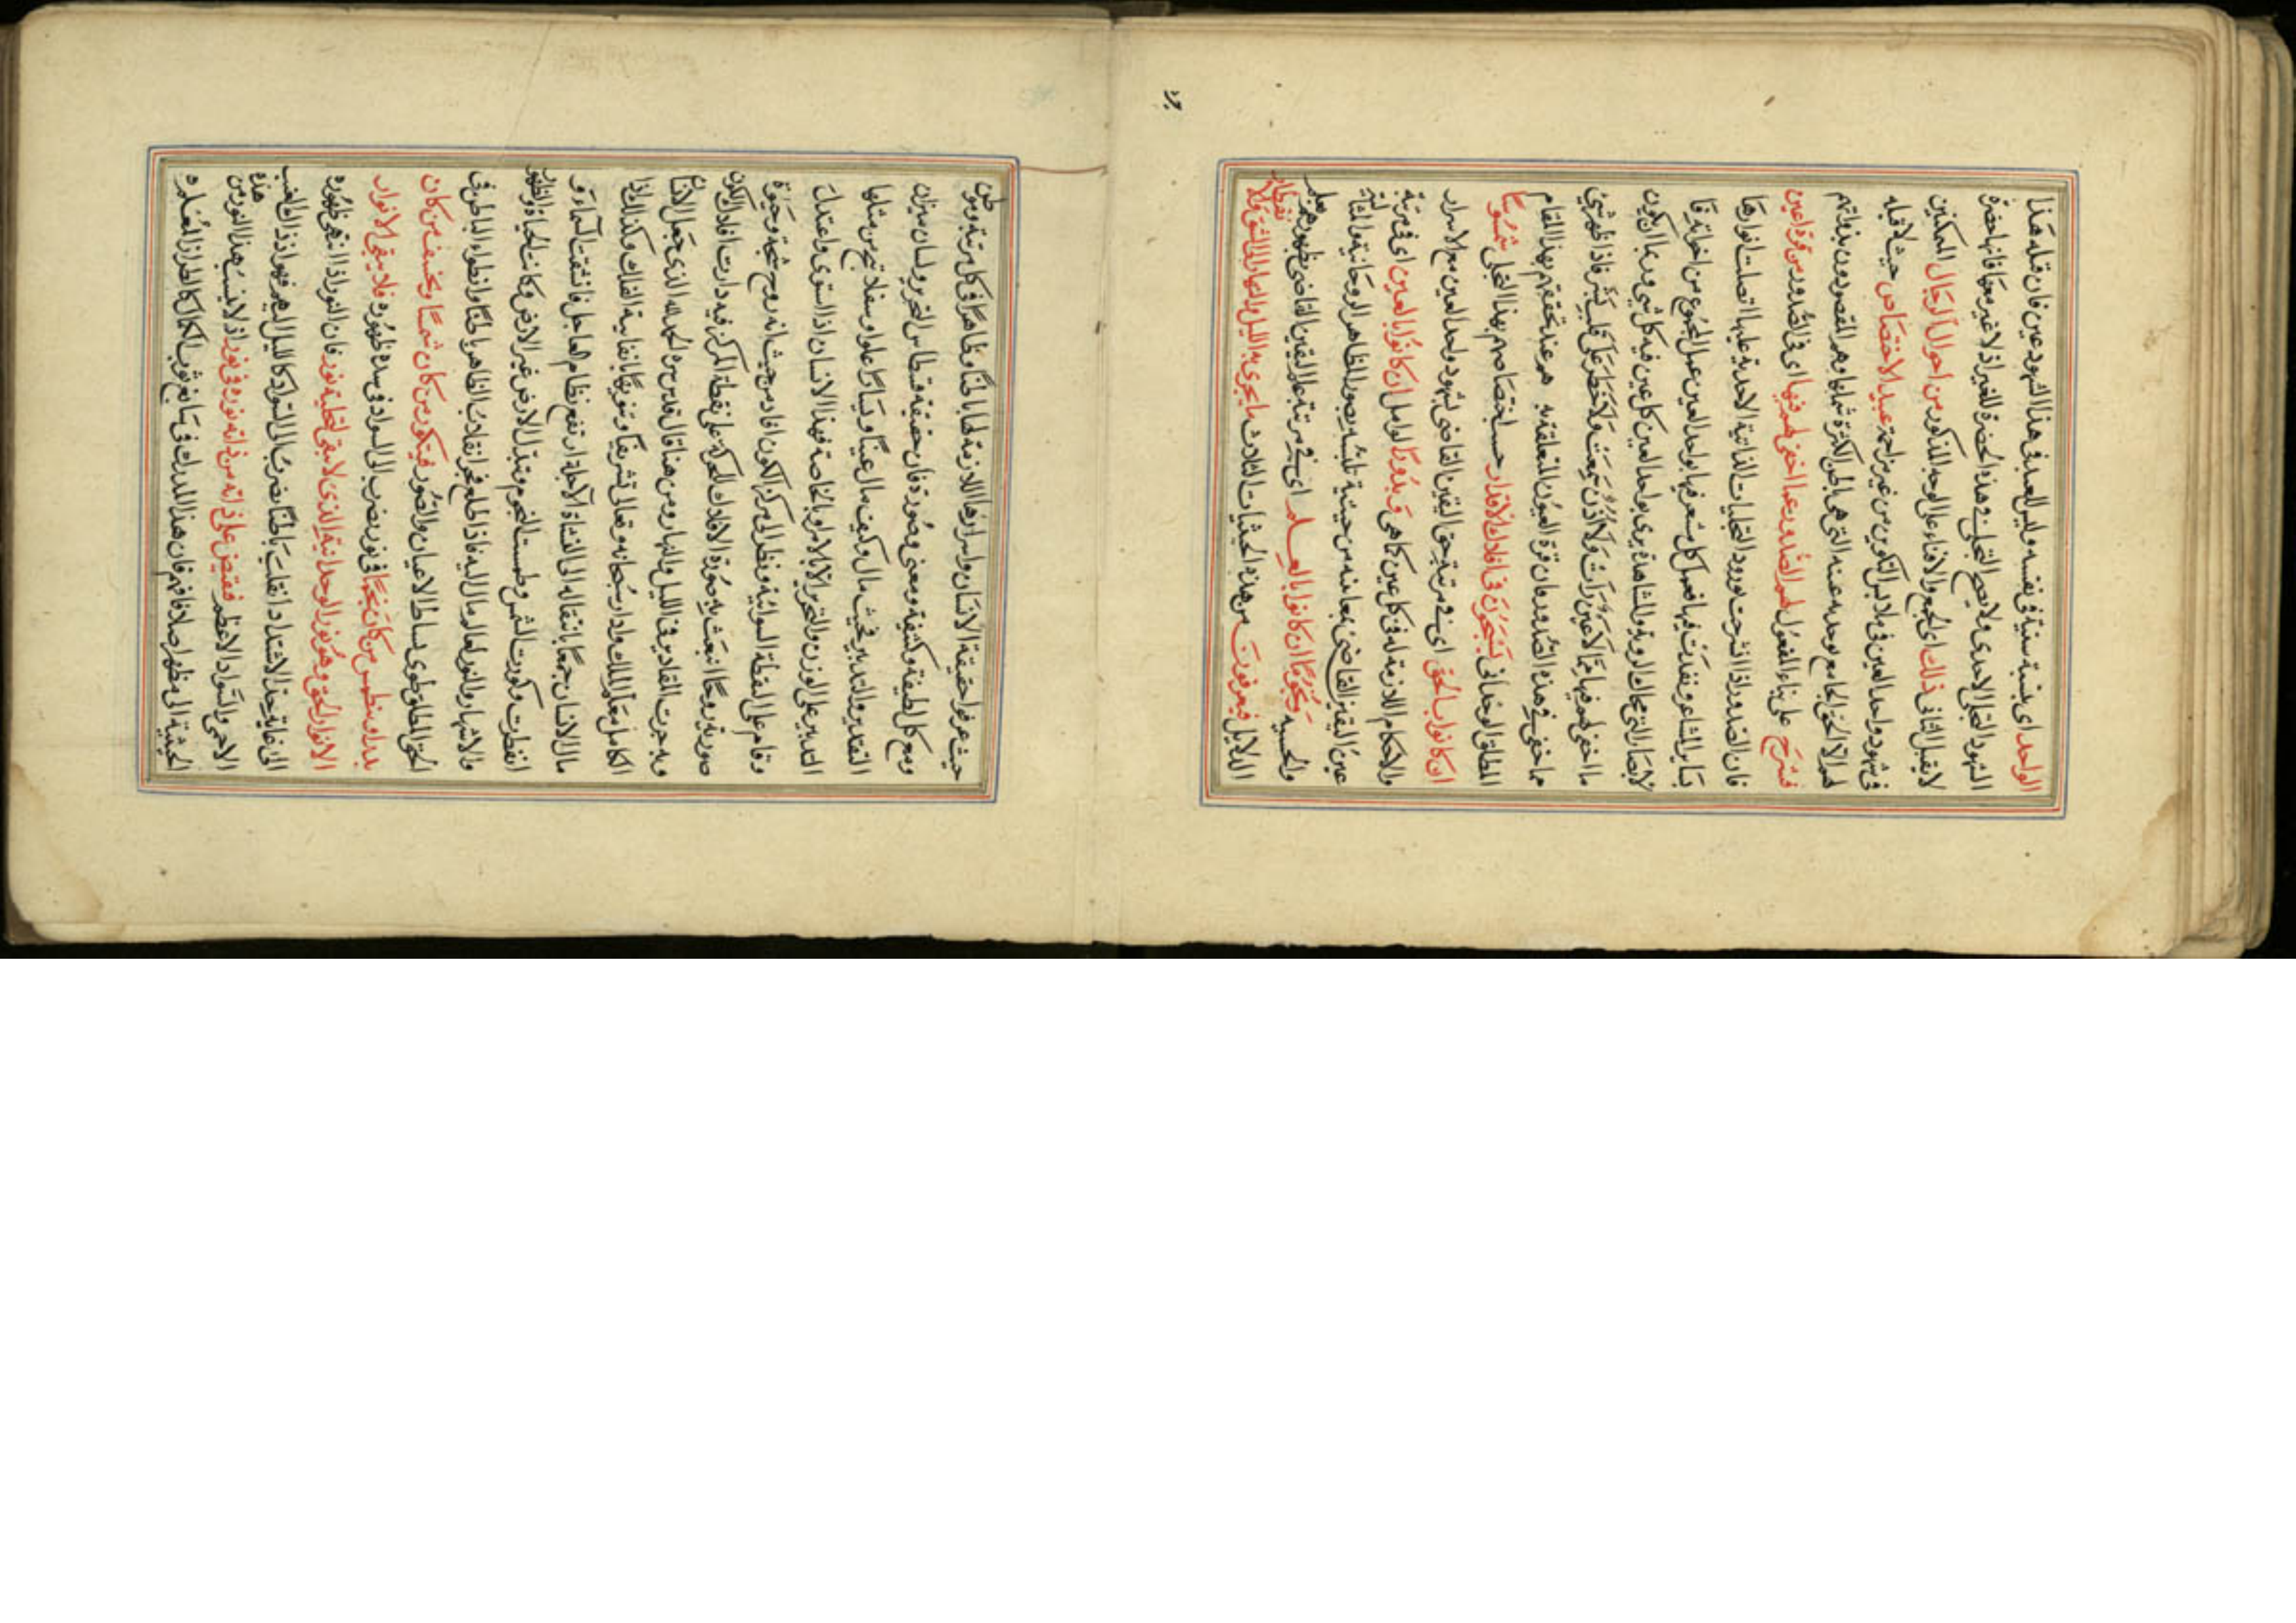 الواحد اى بنسبة سنية فى نفسه وليس للعبد فى هذا الشهود عين فان قله هذا
الشهود التجلى الاحدى ولا يصح التجلى فى هذه الحضرة للغير اذ لا غير معها فانها حضرة
لا يقبل الثانى ذلك اى الجمع والافناء على الوجه المذكور من احوال الرجال المكنين
فى شهود واحد العين فى ملابس التكوين من غير مزاحمة عبيد الاختصاص حيث لا قبله
لهم الا الحق الجامع توحده عنه التى هى الحق الكثرة شملها وهم المقصودون بذواتهم
فشرح على بناء المفعول لهم الصدور عما اخفى لهم فيها اى فى الصدور من قرة اعين
فان الصدور اذا انشرحت بورود التجليات الذاتية الاحدية عليها اتصلت انوارها
بساير المشاعر ونفذت فيها فعمل كل مشعر فيها بواحد العين عمل المجموع من اخواته فا
لابصار التى مجال الروية والمشاهدة يرى بواحد العين كل عين فيه كل شئ وربما ان يكون
ما اخفى لهم فيها مما لا عين رات ولا اذن سمعت ولا خطر على قلب بشر فاذا ظهر شئ
مما خفى فى هذه الصدور كان قرة العيون المتعلقة به هم عند تحققهم بهذا المقام
المطلق الوحدانى يسبحون فى افلاك الاقدار حسب اختصاصهم بهذا التجلى شموسا
ان كانوا بالحق اى فى مرتبة حق اليقين القاضى بشهود واحد العين مع الاسرار
والاحكام اللازمة له فى كل عين كما هى وبدورا لوامل ان كانوا بالعين اى فى مرتبة
عين اليقين القاضى بمعاينه من حيثية تلبسه بصور المظاهر الروحانية والمثالية
والحسية ونجوما ان كانوا بالعلم اى فى مرتبة علم اليقين القاضى بظهورهم بعلم
الدلايل فيعرفون من هذه الحيثيات الثلاث ما يجرى به الليل والنهار الى انشقاق
حيث عرفوا حقيقة الانسان واسرارها اللازمة لها باطنا وظاهرا فى كل مرتبة وموطن
ومع كل لطيفة وكثيفة ومعنى وصورة فان حقيقته قسطاس التحرير ولسان ميزان
التقدير والتدبير فحيث مال وكيف مال عينا ويسارا علوا وسفلا تبع من مثلها
التدبير على الوزن والتحرير الا بالامر او بالخاصة فهذا الانسان اذا استوى واعتدل
وقام على النقطة السوائية ونظر الى مركز الكون افاد من حيث انه روح شبحه وحيوة
صورته روحا انبعث به صورة الافلاك للحركة على نقطة المركز فيه دارت افلاك الكون
وبه جرت المقادير فى الليل والنهار ومن هنا قال قدس سره الحمد لله الذى جعل الانسان
الكامل معلم الملك وادار سبحانه وتعالى تشريفا وتنويها بانفاسه الفلك وكذلك اذا
مال الانسان جمعا بانتقاله الى النشاة الاجلة ارتفع نظام العاجل فانشقت السماء و
انفطرت وكورت الشمس وطمست النجوم وتبدل الارض غير الارض وكانت الحياة والظهور
والاشتهار والنور لعالم مال اليه فاذا طلع فجر انقلاب الظاهر باطنا وانطواء الباطن فى
الحق المطلق طوى بساط الاعيان والصور فيتكور من كان شمسا ويخسف من كان
بدرا وينطمس من كان نجما فى نور يضرب الى السواد فى سدة ظهوره فلا يبقى الانوار
الا نور الحق وهو نور الوحدانية الذى لا يبقى لتجليه نور فان النور اذا انتهى ظهوره
الى غاية حد الاشتداد انقلب باطنا يضرب الى السواد كالليل البهيم فهو اذ ذاك الغيب
الاحمى والسواد الاعظم فيفيض على ذاته من ذاته نوره فى نور اذ لا نسبة لهذا النور من هذه
الحيثية الى مظهر اصلا فافهم فان هذا المدرك فى سابغ ثوب الكمال كالطراز المعلم